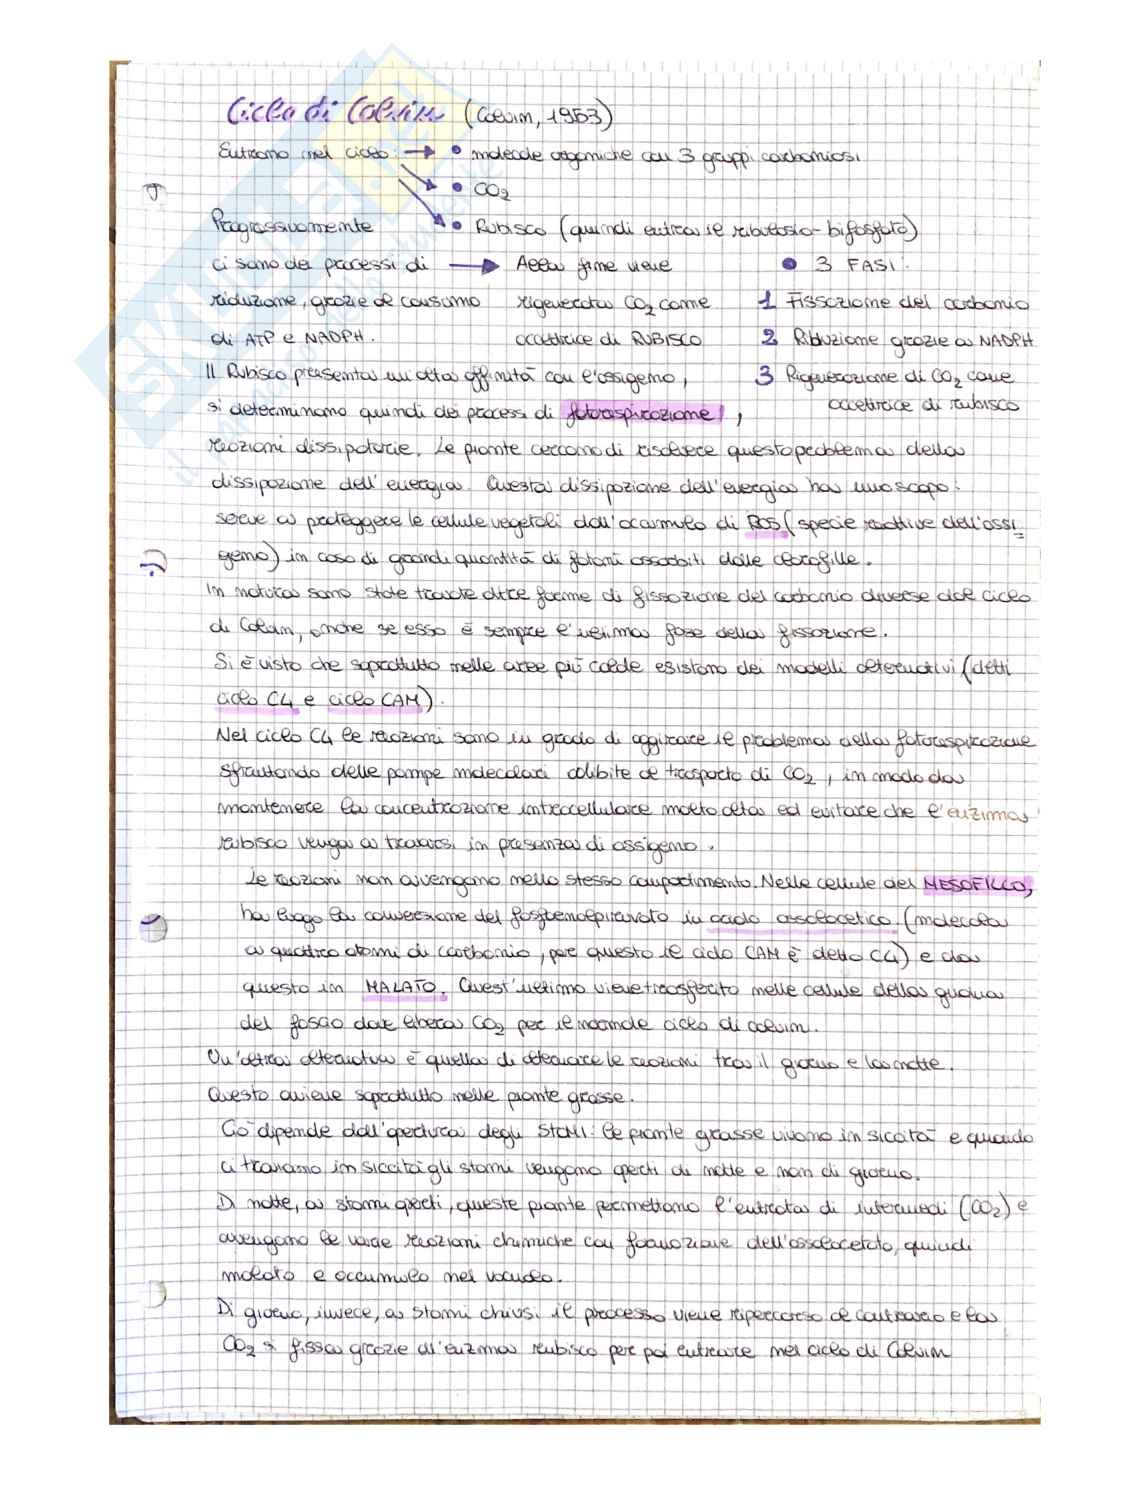 Ciclo di Calvin (Calvin, 1953)
Entrano nel ciclo: → • molecole organiche con 3 gruppi carboniosi
• CO2
• Rubisco (quindi entra il ribulosio-bifosfato)
Progressivamente
ci sono dei processi di → Alla fine viene • 3 FASI:
riduzione, grazie al consumo rigenerata CO2 come 1 Fissazione del carbonio
di ATP e NADPH. accettrice di RUBISCO 2 Riduzione grazie a NADPH
Il Rubisco presenta un'alta affinità con l'ossigeno, 3 Rigenerazione di CO2 come
si determinano quindi dei processi di fotorespirazione, accettrice di rubisco
reazioni dissipatorie. Le piante cercano di risolvere questo problema della
dissipazione dell'energia. Questa dissipazione dell'energia ha uno scopo:
serve a proteggere le cellule vegetali dall'accumulo di ROS (specie reattive dell'ossi
geno) in caso di grandi quantità di fotoni assorbiti dalle clorofille.
In natura sono state trovate altre forme di fissazione del carbonio diverse dal ciclo
di Calvin, anche se esso è sempre l'ultima fase della fissazione.
Si è visto che soprattutto nelle aree più calde esistono dei modelli alternativi (detti
ciclo C4 e ciclo CAM).
Nel ciclo C4 le reazioni sono in grado di aggirare il problema della fotorespirazione
sfruttando delle pompe molecolari adibite al trasporto di CO2, in modo da
mantenere la concentrazione intracellulare molto alta ed evitare che l'enzima
rubisco venga a trovarsi in presenza di ossigeno.
Le reazioni non avvengono nello stesso compartimento. Nelle cellule del MESOFILLO,
ha luogo la conversione del fosfoenolpiruvato in acido ossalacetico (molecola
a quattro atomi di carbonio, per questo il ciclo CAM è detto C4) e da
questo in MALATO. Quest'ultimo viene trasferito nelle cellule della guaina
del fascio dove libera CO2 per il normale ciclo di calvin.
Un'altra alternativa è quella di alternare le reazioni tra il giorno e la notte.
Questo avviene soprattutto nelle piante grasse.
Ciò dipende dall'apertura degli STOMI: le piante grasse vivono in siccità e quando
ci troviamo in siccità gli stomi vengono aperti di notte e non di giorno.
Di notte, a stomi aperti, queste piante permettono l'entrata di intermedi (CO2) e
avvengono le varie reazioni chimiche con formazione dell'ossalacetato, quindi
malato e accumulo nel vacuolo.
Di giorno, invece, a stomi chiusi il processo viene ripercorso al contrario e la
CO2 si fissa grazie all'enzima rubisco per poi entrare nel ciclo di Calvin